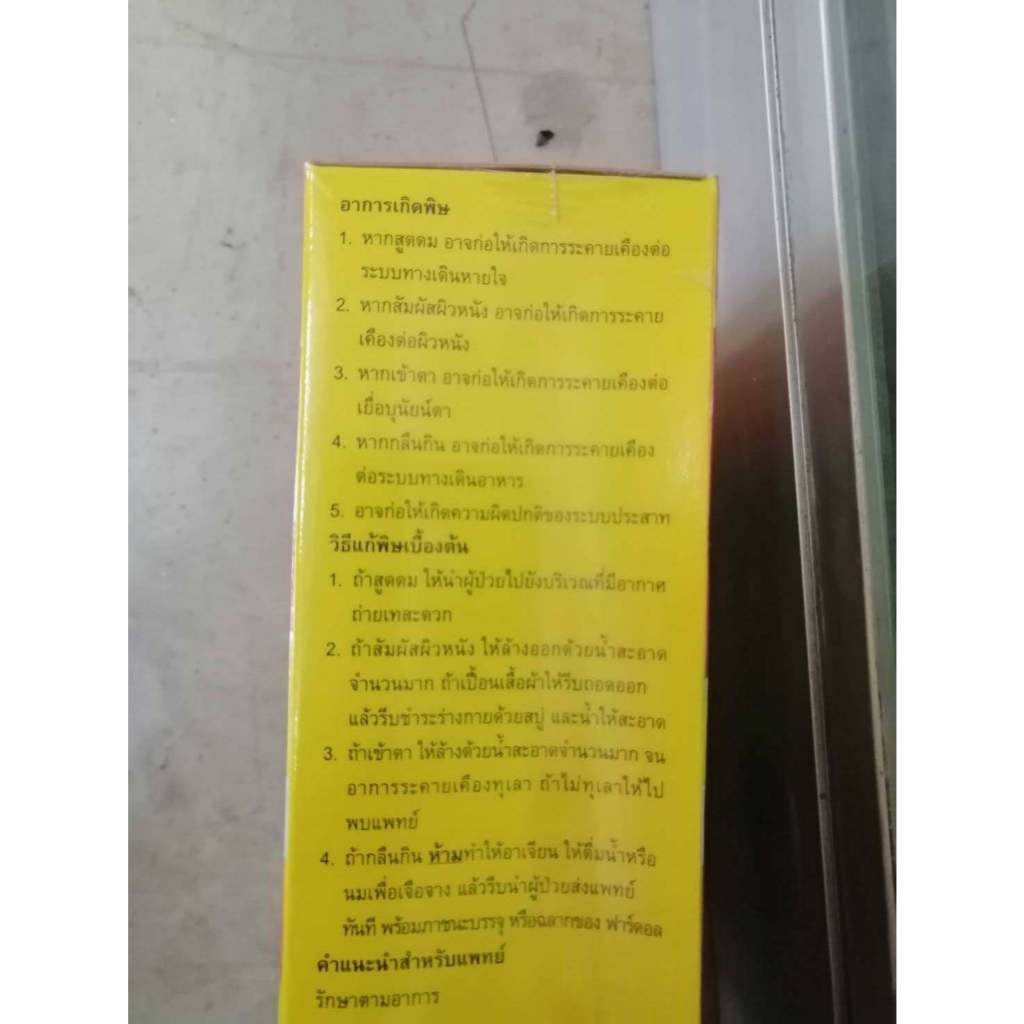 อาการเกิดพิษ
1. หากสูดดม อาจก่อให้เกิดการระคายเคืองต่อ
ระบบทางเดินหายใจ
2. หากสัมผัสผิวหนัง อาจก่อให้เกิดการระคาย
เคืองต่อผิวหนัง
3. หากเข้าตา อาจก่อให้เกิดการระคายเคืองต่อ
เยื่อบุนัยน์ตา
4. หากกลืนกิน อาจก่อให้เกิดการระคายเคือง
ต่อระบบทางเดินอาหาร
5. อาจก่อให้เกิดความผิดปกติของระบบประสาท
วิธีแก้พิษเบื้องต้น
1. ถ้าสูดดม ให้นำผู้ป่วยไปยังบริเวณที่มีอากาศ
ถ่ายเทสะดวก
2. ถ้าสัมผัสผิวหนัง ให้ล้างออกด้วยน้ำสะอาด
จำนวนมาก ถ้าเปื้อนเสื้อผ้าให้รีบถอดออก
แล้วรีบชำระร่างกายด้วยสบู่ และน้ำให้สะอาด
3. ถ้าเข้าตา ให้ล้างด้วยน้ำสะอาดจำนวนมาก จน
อาการระคายเคืองทุเลา ถ้าไม่ทุเลาให้ไป
พบแพทย์
4. ถ้ากลืนกิน ห้ามทำให้อาเจียน ให้ดื่มน้ำหรือ
นมเพื่อเจือจาง แล้วรีบนำผู้ป่วยส่งแพทย์
ทันที พร้อมภาชนะบรรจุ หรือฉลากของ ฟาร์ดอล
คำแนะนำสำหรับแพทย์
รักษาตามอาการ